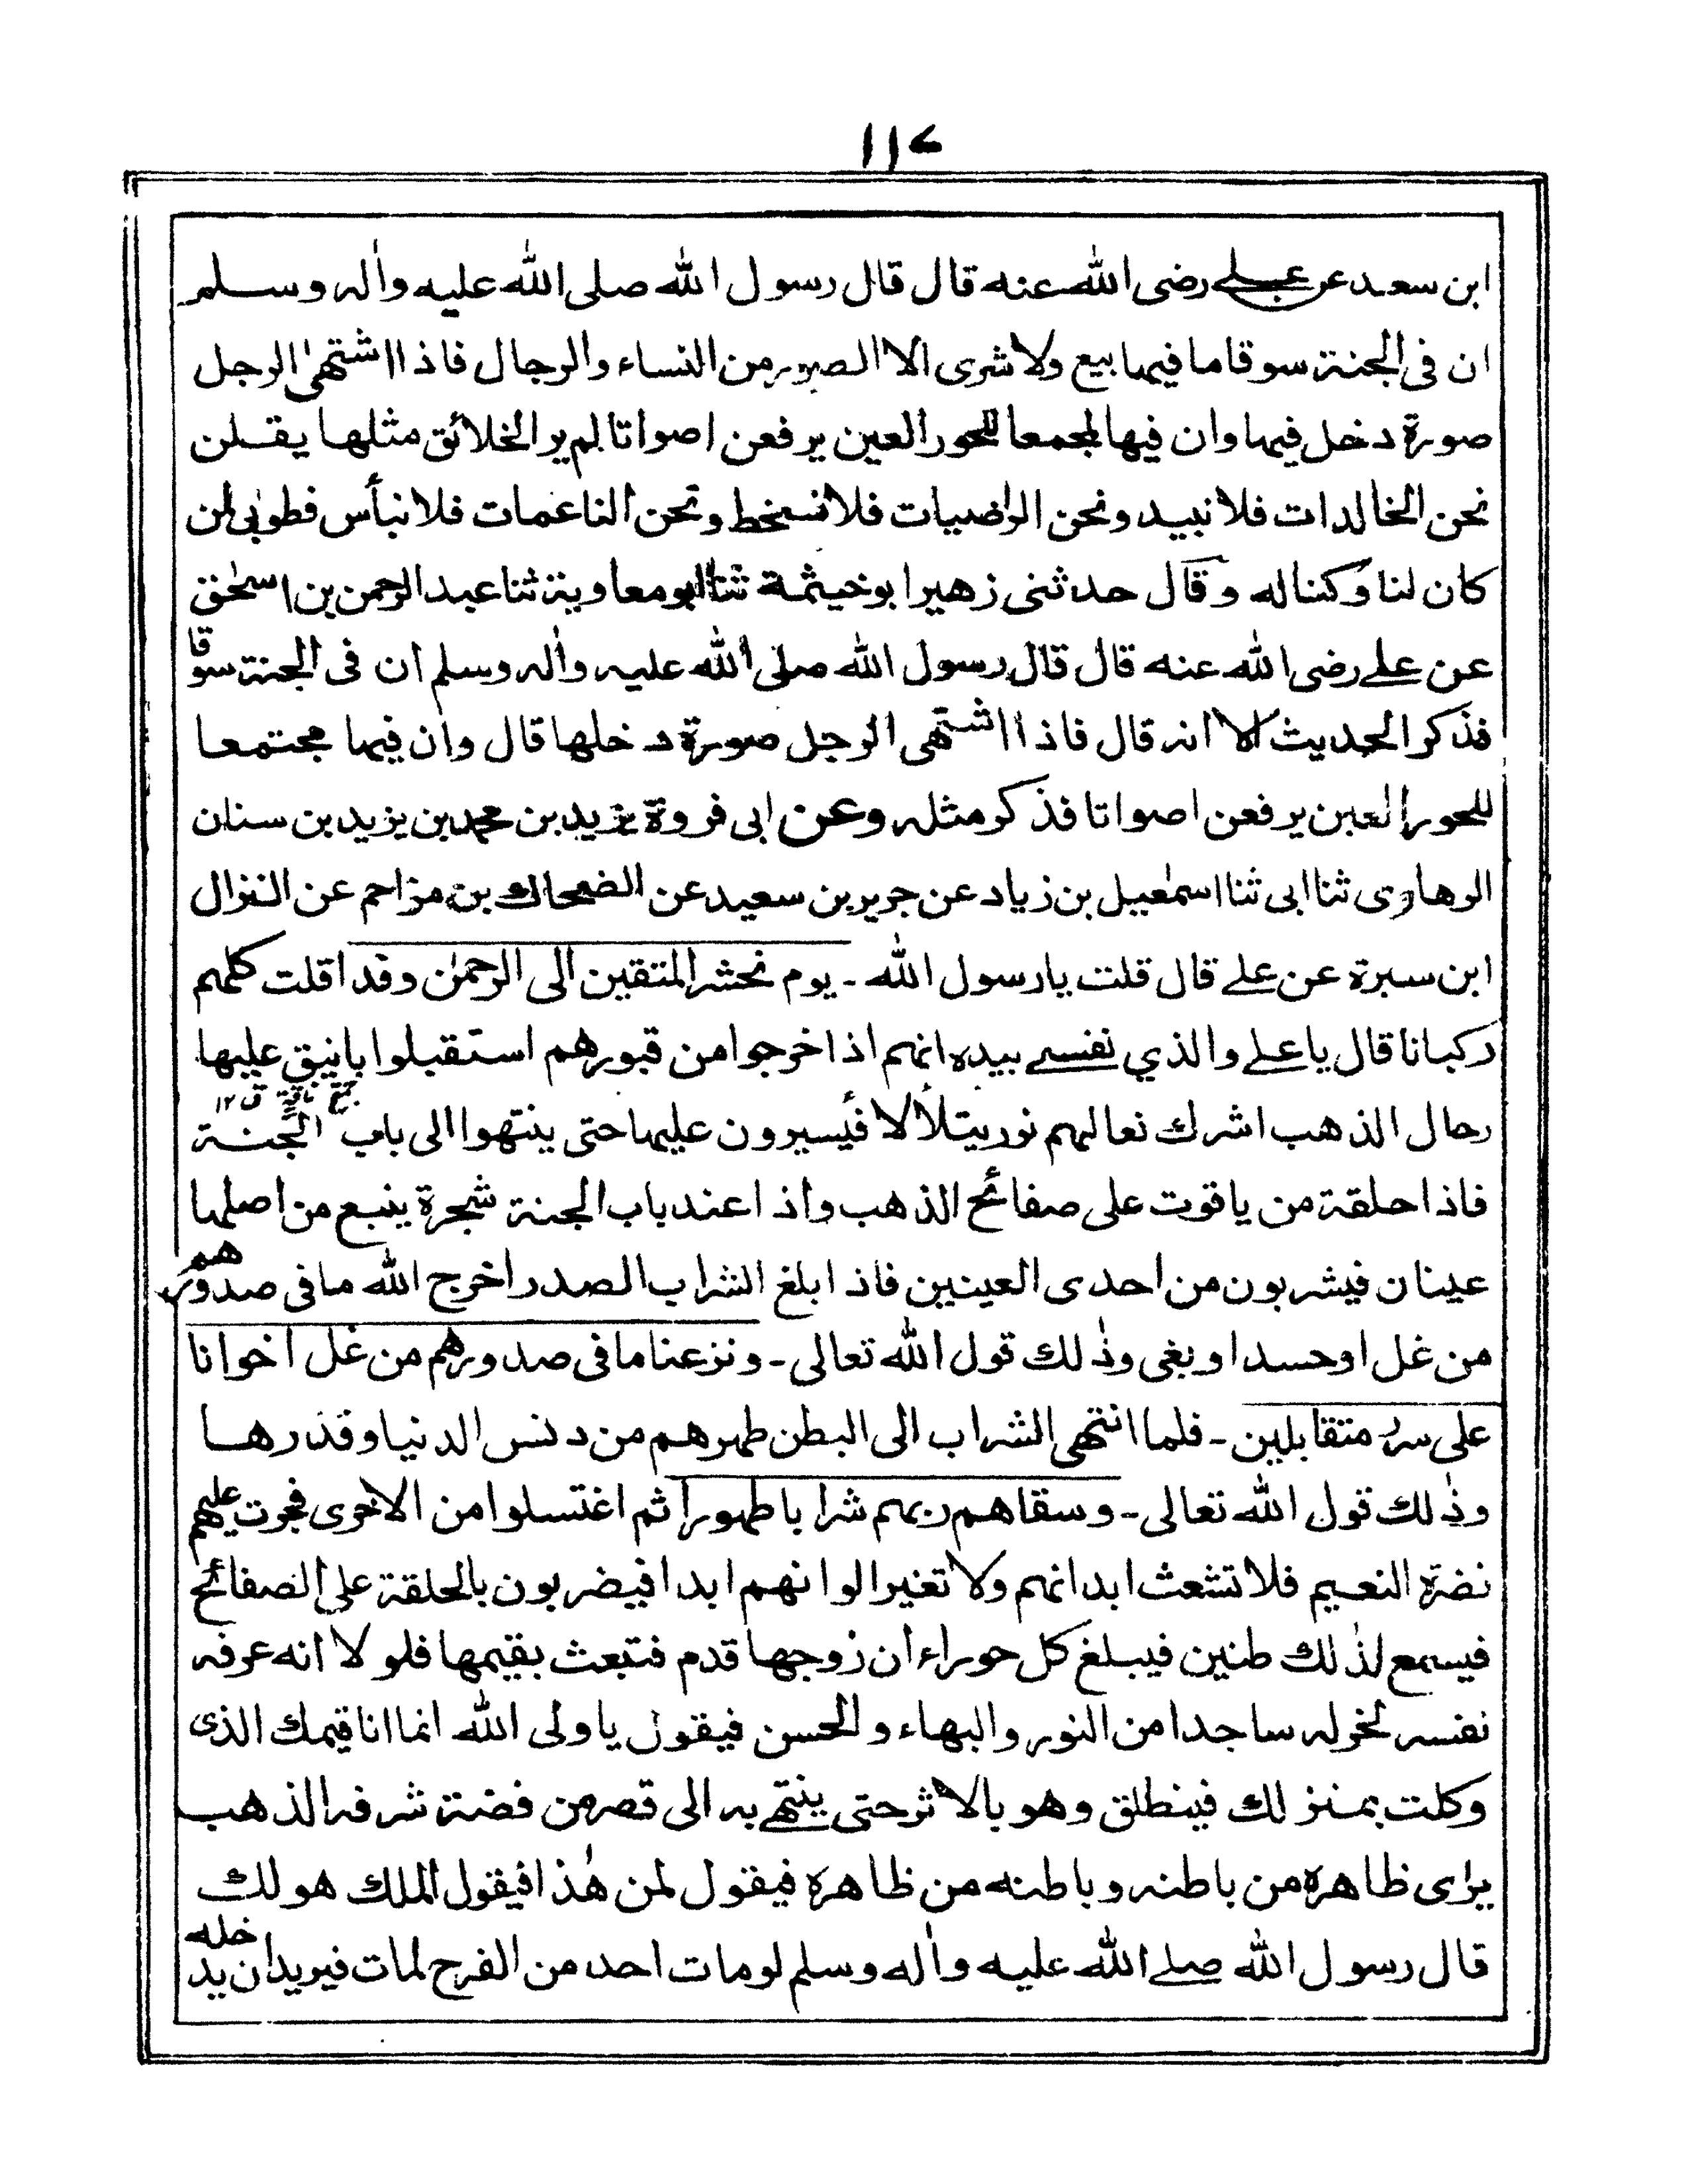 ١١٤
ابن سعد عن علے رضى الله عنه قال قال رسول الله صلى الله عليه واٰله وسلم
ان فى الجنة سوقا ما فيها بيع ولا شرى الا الصور من النساء والرجال فاذا اشتهىٰ الرجل
صورة دخل فيها وان فيها لمجمعا للحور العين يرفعن اصواتا لم ير الخلائق مثلها يقلن
نحن الخالدات فلا نبيد ونحن الراضيات فلا نسخط ونحن الناعمات فلا نبأس فطوبىٰ لمن
كان لنا وكنا له وقال حدثنى زهير ابو خيثمة ثنا ابو معاوية ثنا عبد الرحمن بن اسحٰق
عن علے رضى الله عنه قال قال رسول الله صلى الله عليه واٰله وسلم ان فى الجنة سوقا
فذكر الحديث الا انه قال فاذا اشتهى الرجل صورة دخلها قال وان فيها مجتمعا
للحور العين يرفعن اصواتا فذكر مثله وعن ابى فروة يزيد بن محمد بن يزيد بن سنان
الرهاوى ثنا ابى ثنا اسمٰعيل بن زياد عن جرير بن سعيد عن الضحاك بن مزاحم عن النزال
ابن سبرة عن علے قال قلت يا رسول الله ـ يوم نحشر المتقين الى الرحمٰن وفدا قلت كلهم
ركبانا قال يا علے والذي نفسے بيده انهم اذا خرجوا من قبورهم استقبلوا بانيق عليها
جمع ناقة ق ١٢
رحال الذهب اشرك نعالهم نور يتلألأ فيسيرون عليها حتى ينتهوا الى باب الجنة
فاذا حلقة من ياقوت على صفائح الذهب واذا عند باب الجنة شجرة ينبع من اصلها
عينان فيشربون من احدى العينين فاذا بلغ الشراب الصدر اخرج الله ما فى صدورهم
من غل او حسد او بغى وذٰلك قول الله تعالى ـ ونزعنا ما فى صدورهم من غل اخوانا
على سرر متقابلين ـ فلما انتهى الشراب الى البطن طهرهم من دنس الدنيا وقذرها
وذٰلك قول الله تعالى ـ وسقاهم ربهم شرابا طهورا ثم اغتسلوا من الاخرى فجرت عليهم
نضرة النعيم فلا تشعث ابدانهم ولا تغير الوانهم ابدا فيضربون بالحلقة على الصفائح
فيسمع لذٰلك طنين فيبلغ كل حوراء ان زوجها قدم فتبعث بقيمها فلو لا انه عرفه
نفسه لخر له ساجدا من النور والبهاء والحسن فيقول يا ولى الله انما انا قيمك الذى
وكلت بمنزلك فينطلق وهو بالاثر حتى ينتهے به الى قصر من فضة شرفه الذهب
يرٰى ظاهره من باطنه وباطنه من ظاهره فيقول لمن هٰذا فيقول الملك هو لك
قال رسول الله صلے الله عليه واٰله وسلم لو مات احد من الفرح لمات فيريد ان يدخله